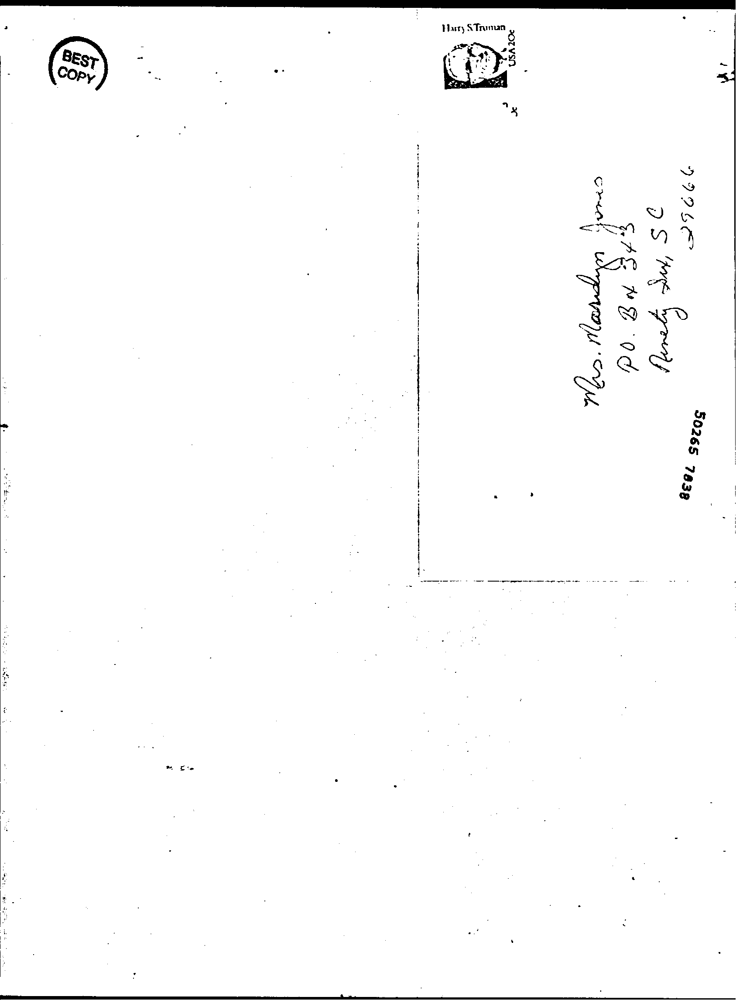 BEST
COPY
Harry S. Truman
USA 20c
Mrs. Marilyn Jones
P.O. Box 343
Ninety Six, SC
29666
50265 7838